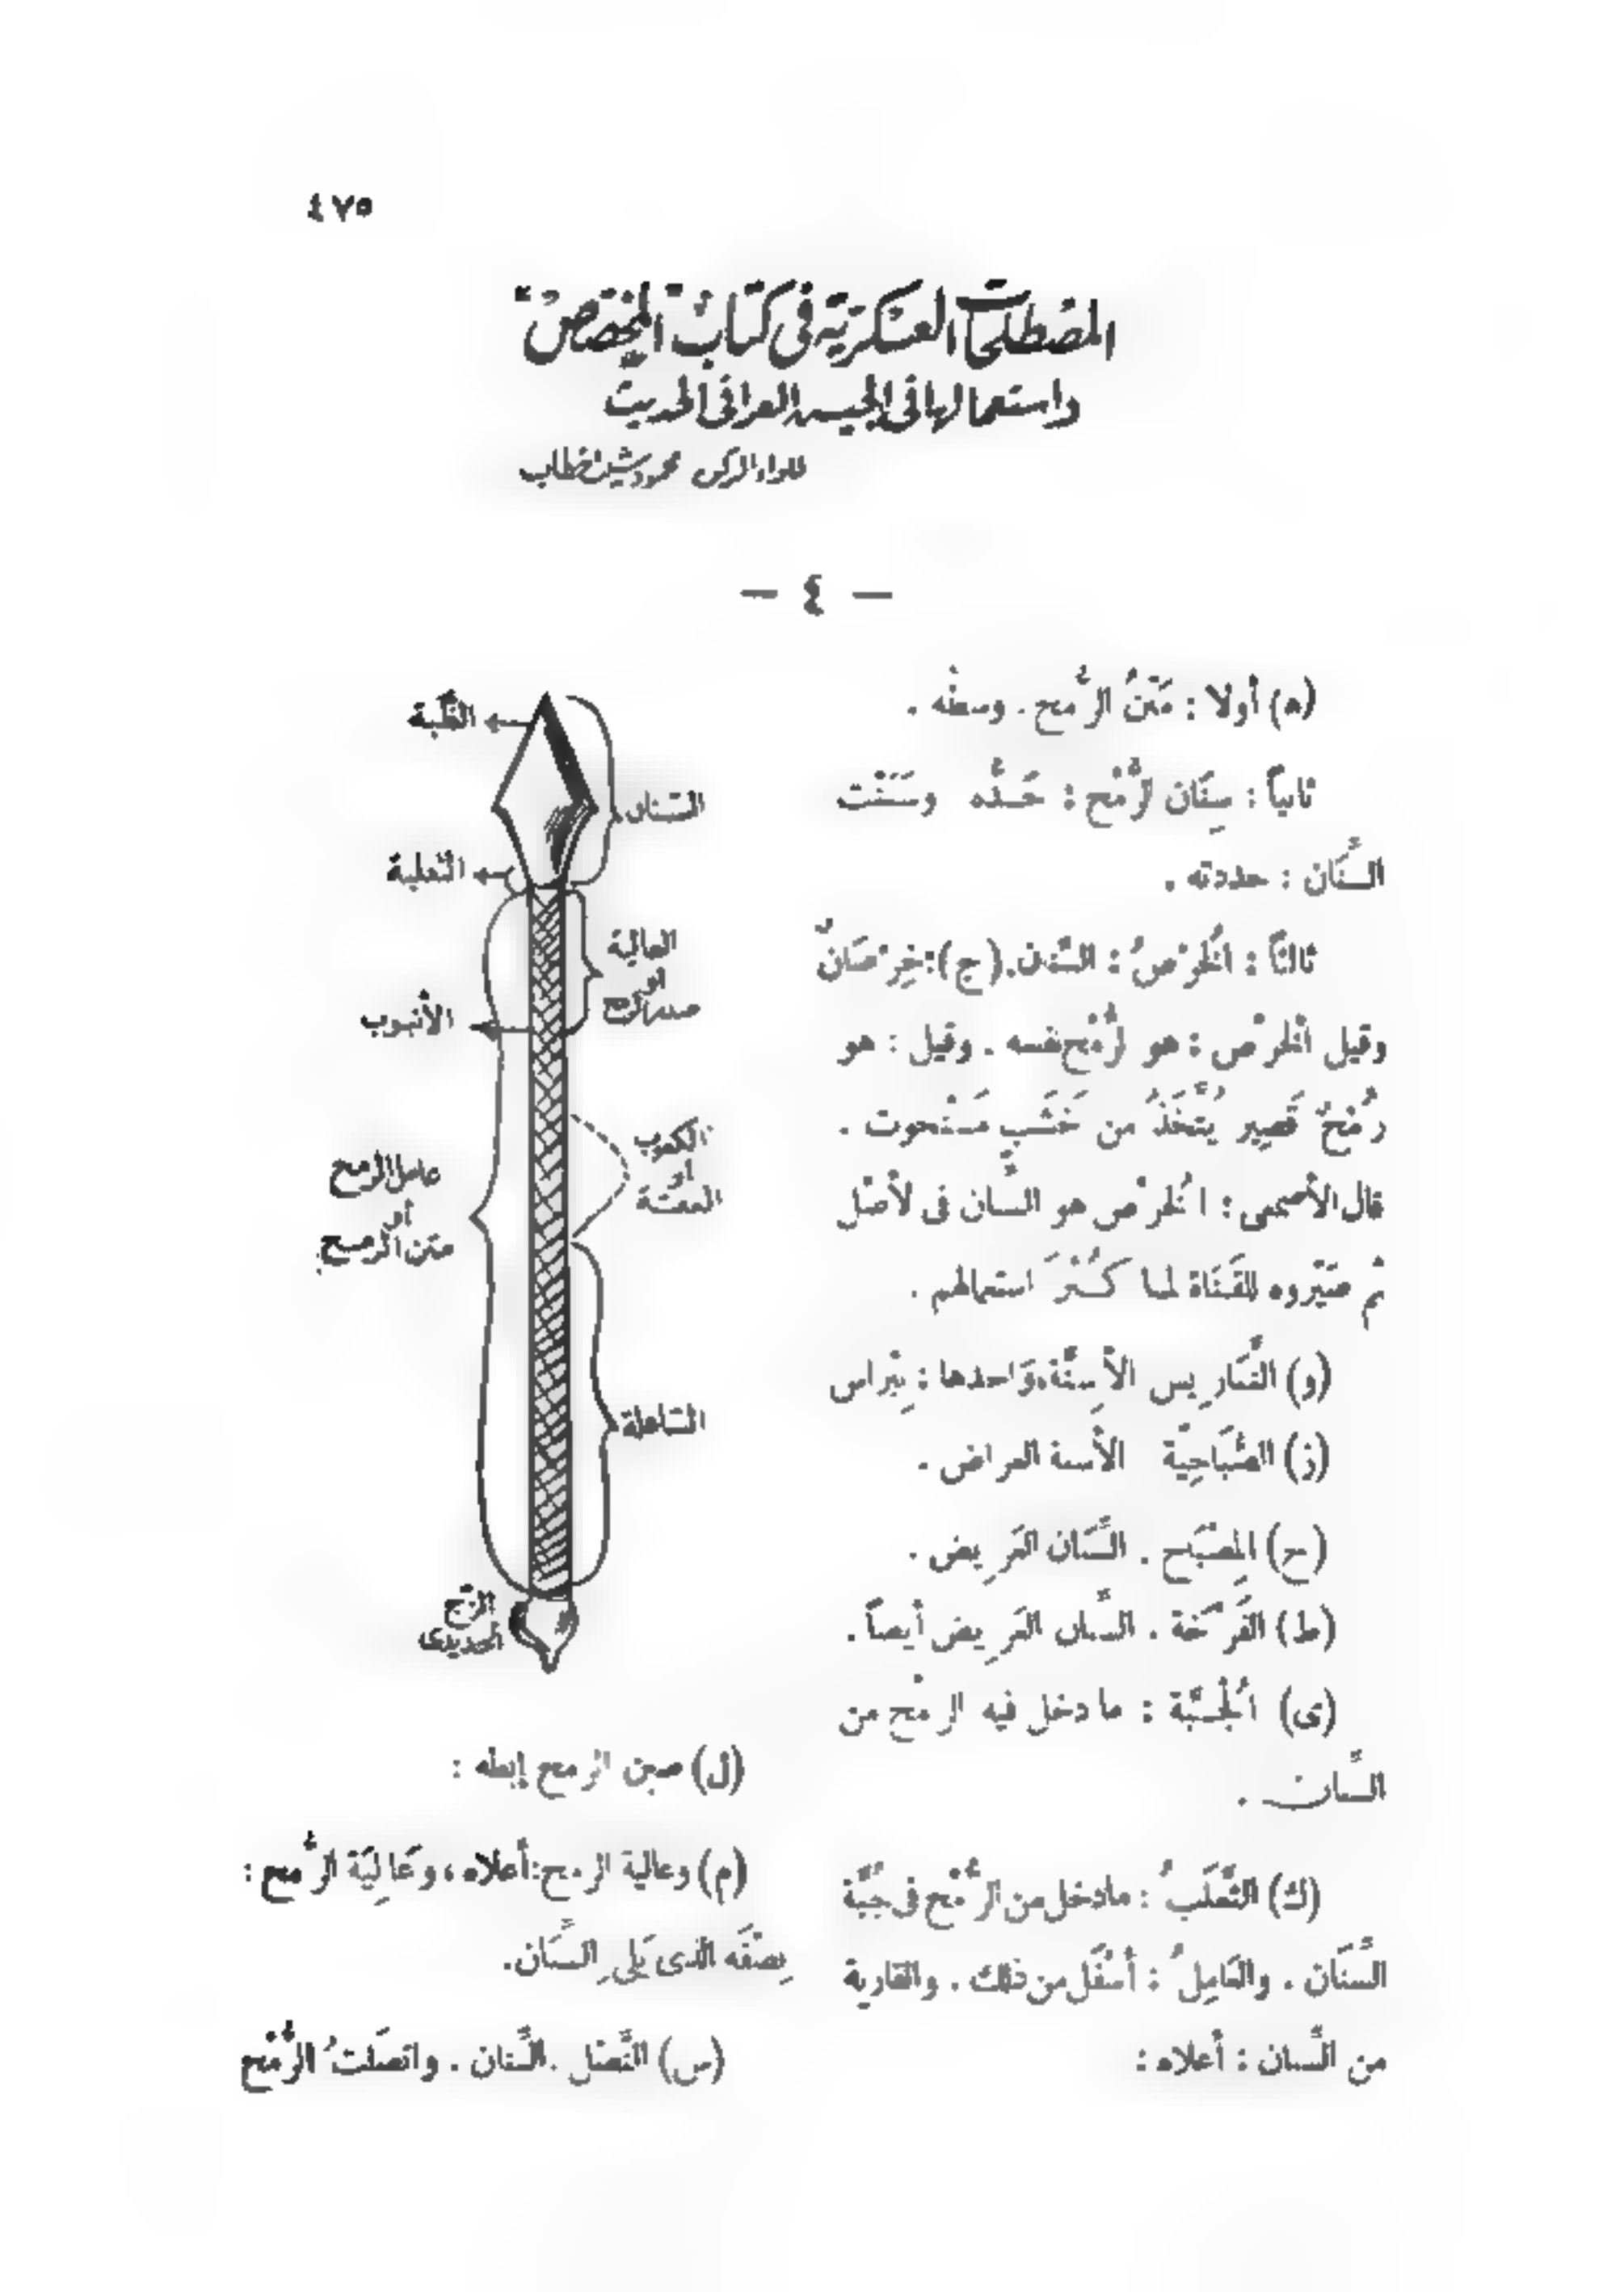 ٤٧٥
المصطلحات العسكرية فى كتاب "المخصص"
واستعمالها فى الجيش العراقى الحديث
للواء الركن محمود شيت خطاب
— ٤ —
(ه) أولا : مَتْنُ الرُّمح . وسطُه .
ثانياً : سِنَان الرُّمْح : حَــدُّه وسَنَنْت
السِّنَان : حددته .
ثالثاً : الْخُرْصُ : السِّنان . (ج) : خِرْصَانٌ
وقيل الْخُرْص : هو الرُّمْح نفسه . وقيل : هو
رُمْحٌ قَصِير يُتَّخَذُ من خَشَبٍ مَنْحوت .
قال الأصمعى : الْخُرْص هو السِّنان فى الأصْل
ثم صَيَّروه للقَنَاة لما كَــثُرَ استعمالهم .
(و) النَّبَارِيس الأسِنَّة، وَاحدها : نِبْراس
(ز) الصُّبَاحِيَّة الأسنة العراض .
(ح) المِصْبَح . السِّنَان العَرِيض .
(ط) القَرْحَة . السِّنان العَرِيض أيضاً .
(ى) الْجُـبَّة : ما دخل فيه الرمْح من
السِّنان .
(ك) الثَّعْلَبُ : مادخل من الرُّمْح فى جُبَّة
السِّنَان . والعَامِلُ : أسْفَل من ذلك . والقارية
من السِّنان : أعلاه :
الظُّبة
السّنان
الثعلبة
العالية
أو
صدر الرمح
الأنبوب
الكعوب
أو
العقدة
عامل الرمح
أو
متن الرمح
السّافلة
الزج
الحديدى
(ل) ضبن الرمح إبطه :
(م) وعالية الرمح : أعلاه ، وعَالِيَة الرُّمح :
نِصْفَه الذى يَلِى السِّنَان .
(س) النَّصْل . السِّنان . واتصَلتُ الرُّمْح